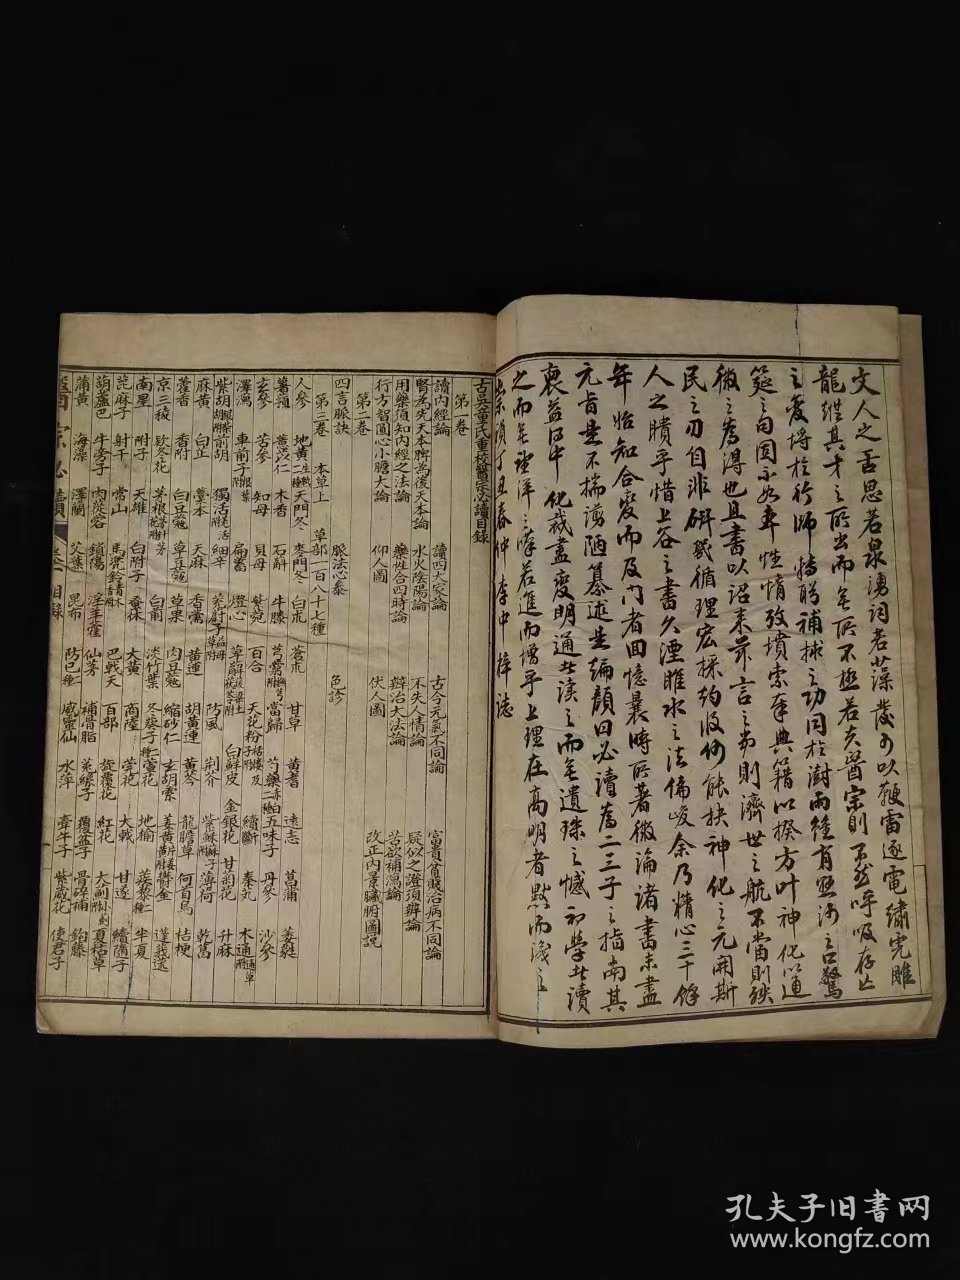 文人之舌思若泉湧詞若藻發可以鞭雷逐電繡虎雕
龍經其才之所出而無所不極若夫醫宗則不然呼吸存亡
之變埒於行師轉盻補捄之功同於澍雨雖有懸河之口驚
筵之句固不如本性情攷墳索率典籍以揆方叶神化以通
微之為得也且書以詔來茲言之當則濟世之航不當則殃
民之刃自非研幾循理宏採約收何能抉神化之元開斯
人之瞶乎惜上谷之書久湮睢水之法偏峻余乃精心三十餘
年始知合變而及門者回憶曩時所著微論諸書未盡
元旨是不揣譾陋纂述是編顏曰必讀為二三子之指南其
裒益得中化裁盡變明通者讀之而無遺珠之憾初學者讀
之而無望洋之嘆若進而增乎上理在高明者默而識之
崇禎丁丑春仲李中梓誌
古吳童氏重校醫宗必讀目錄
第一卷
讀內經論 讀四大家論 古今元氣不同論 富貴貧賤治病不同論
腎為先天本脾為後天本論 水火陰陽論 不失人情論 疑似之證須辨論
用藥須知內經之法論 藥性合四時論 辯治大法論 苦欲補瀉論
行方智圓心小膽大論 仰人圖 伏人圖 改正內景臟腑圖說
第二卷
四言脈訣 脈法心參 色診
第三卷 本草上 草部一百八十七種
人參 地黃生熟二種 天門冬 麥門冬 白朮 蒼朮 甘草 黃耆 遠志 菖蒲 葳蕤
薯蕷 薏苡仁 木香 石斛 牛膝 芎藭 當歸 芍藥赤白二種 五味子 丹參 沙參
玄參 苦參 知母 貝母 紫菀 百合 天花粉 續斷 秦艽 木通
澤瀉 車前子 扁蓄 燈心 萆薢 白鮮皮 金銀花 甘菊花 升麻
柴胡 前胡 獨活 細辛 茺蔚子 防風 荊芥 紫蘇 薄荷 乾葛
麻黃 白芷 藁本 天麻 香薷 黃連 胡黃連 黃芩 龍膽草 何首烏 桔梗
藿香 香附 白豆蔻 草豆蔻 草果 肉豆蔻 縮砂仁 玄胡索 姜黃 鬱金 蓬莪蒁
京三稜 欵冬花 茅根 白前 淡竹葉 冬葵子 萱花 地榆 蒺藜二種 半夏
南星 附子 天雄 白附子 蚤休 大黃 商陸 芫花 大戟 甘遂 續隨子
蓖麻子 射干 常山 馬兜鈴 巴戟天 百部 旋覆花 紅花 大薊小薊 夏枯草
葫蘆巴 牛蒡子 肉蓯蓉 鎖陽 淫羊藿 仙茅 補骨脂 菟絲子 覆盆子 骨碎補 鉤藤
蒲黃 海藻 澤蘭 艾葉 昆布 防己二種 威靈仙 水萍 牽牛子 紫葳花 使君子
醫宗必讀 卷一 目錄
孔夫子旧書网
www.kongfz.com